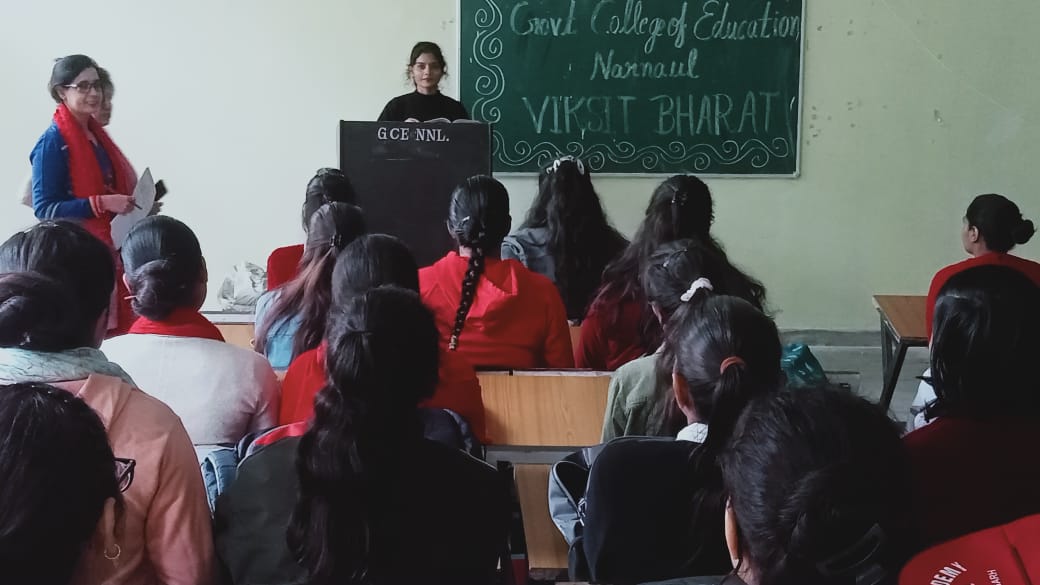 Govt College of Education
Narnaul
VIKSIT BHARAT
GCE NNL.
DEMY